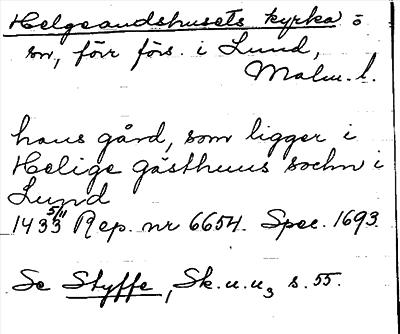 Helgeandshusets kyrka o
sn, förr förs. i Lund,
Malm. l.
hans gård, som ligger i
Helige gästhuus sochn i
Lund
1433 5/11 Rep. nr 6654. Spec. 1693.
Se Styffe, Sk.u.u3 s. 55.